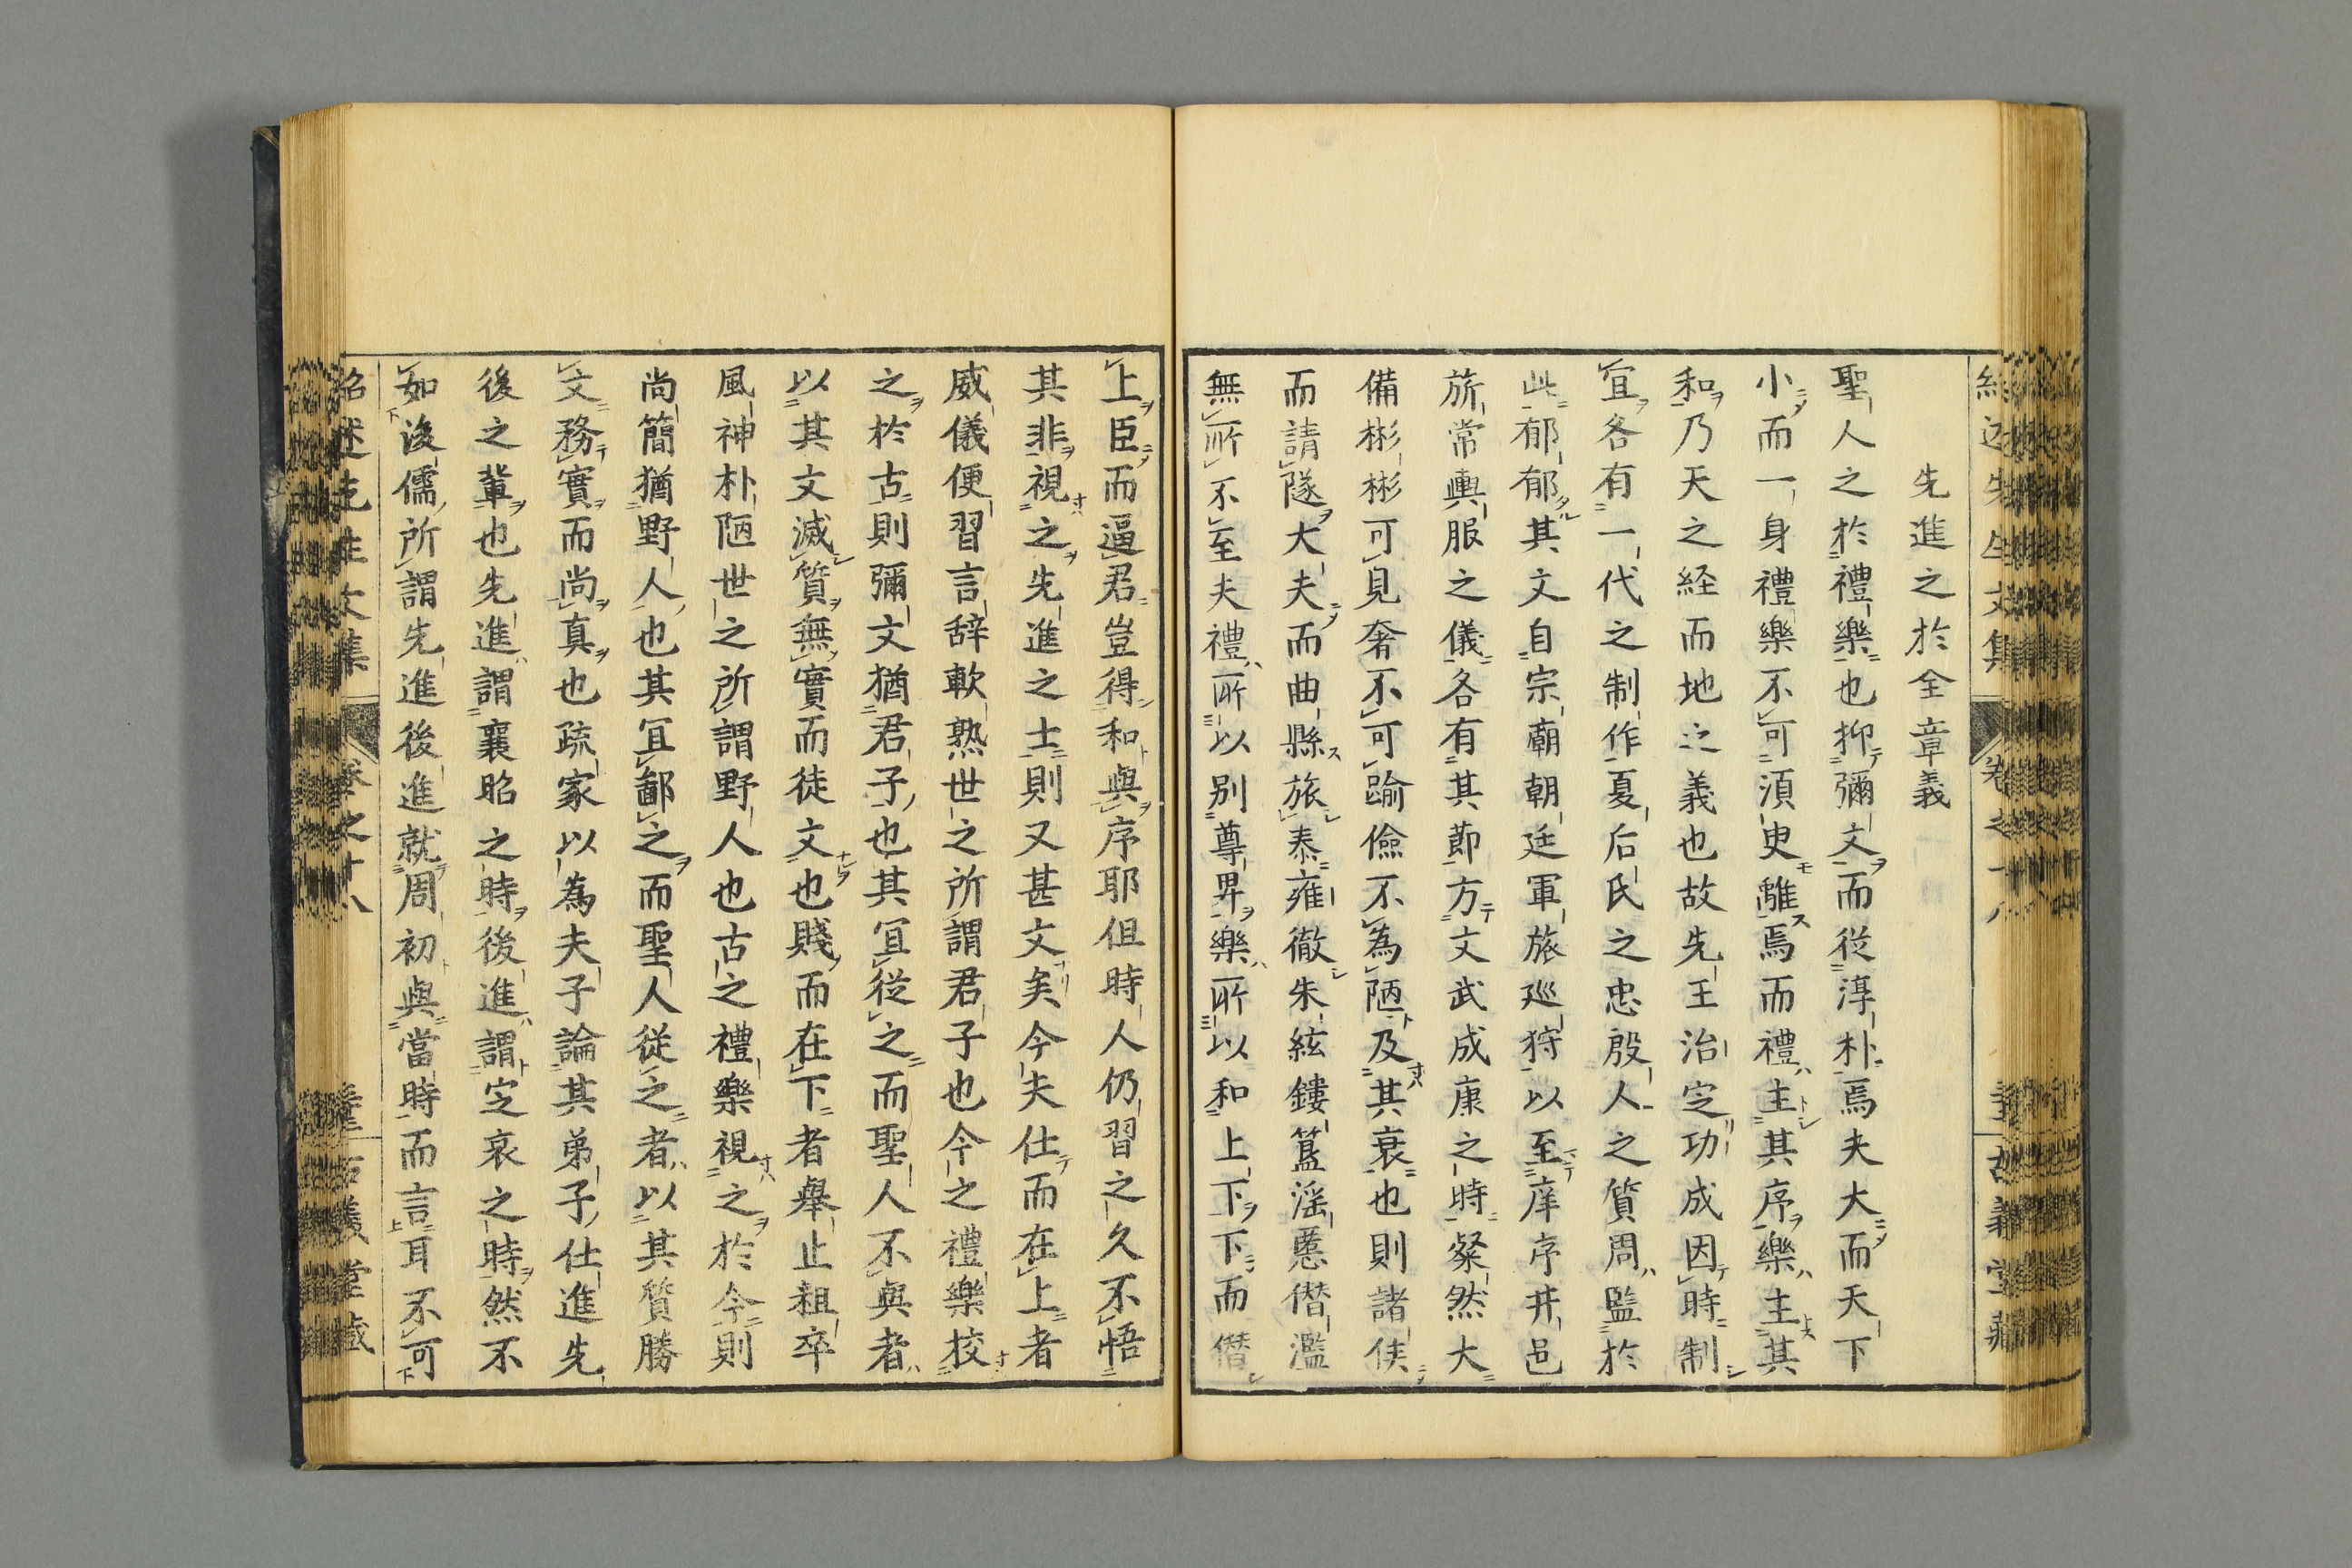 先進之於全章義
聖人之於禮樂也抑彌文而從淳朴焉夫大而天下
小而一身禮樂不可須臾離焉而禮主其序樂主其
和乃天之経而地之義也故先王治定功成因時制
宜各有一代之制作夏后氏之忠殷人之質周監於
此郁郁其文自宗廟朝廷軍旅巡狩以至庠序井邑
旂常輿服之儀各有其節方文武成康之時粲然大
備彬彬可見奢不可踰儉不為陋及其衰也則諸侯
而請隧大夫而曲縣旅泰雍徹朱絃鏤簋滛慝僭濫
無所不至夫禮所以別尊卑樂所以和上下下而僭
上臣而逼君豈得和與序耶但時人仍習之久不悟
其非視之先進之士則又甚文矣今夫仕而在上者
威儀便習言辞軟熟世之所謂君子也今之禮樂校
之於古則彌文猶君子也其宜從之而聖人不與者
以其文滅質無實而徒文也賤而在下者舉止粗卒
風神朴陋世之所謂野人也古之禮樂視之於今則
尚簡猶野人也其宜鄙之而聖人從之者以其質勝
文務實而尚真也疏家以為夫子論其弟子仕進先
後之輩也先進謂襄昭之時後進謂定哀之時然不
如後儒所謂先進後進就周初與當時而言耳不可
紹述先生文集 卷之十八 古義堂藏